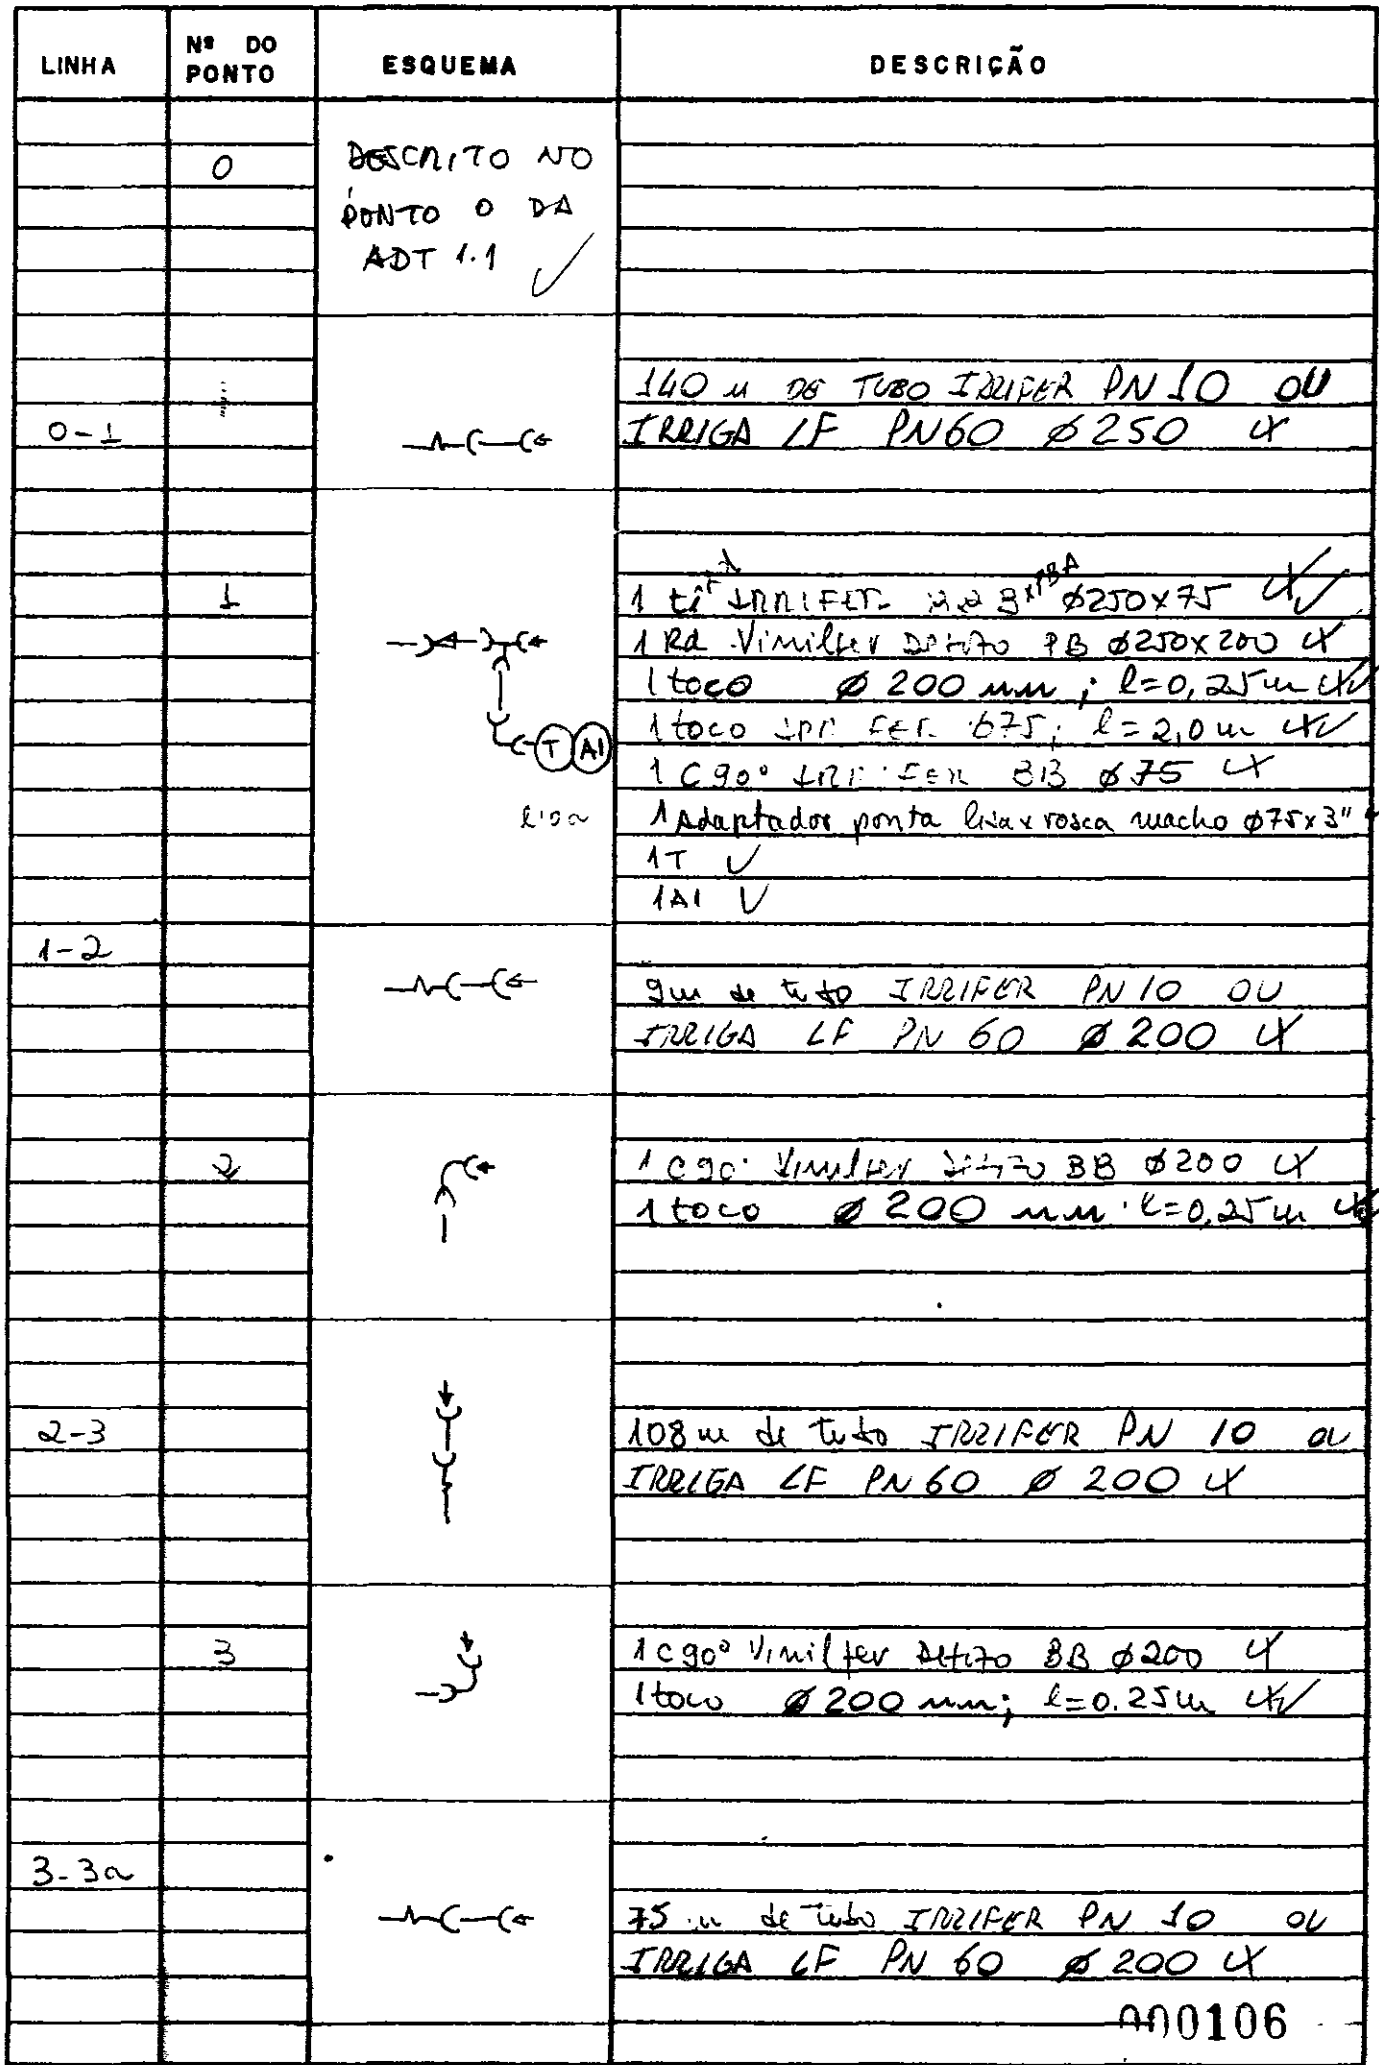 LINHA
Nº DO PONTO
ESQUEMA
DESCRIÇÃO
0
DESCRITO NO
PONTO 0 DA
ADT 1.1 ✓
140 m DE TUBO IRRIFER PN 10 OU
0-1
IRRIGA LF PN60 ø 250
1
1 tê IRRIFER ø250x75
1 Rd Vinilfer DEFºFO PB ø250x200
1 toco ø 200 mm; l=0,25m
1 toco IRRIFER ø75; l=2,0m
T AI
1 C90° IRRIFER BB ø75
lisa
1 Adaptador ponta lisa x rosca macho ø75x3"
1T ✓
1AI ✓
1-2
9m de tubo IRRIFER PN 10 OU
IRRIGA LF PN 60 ø 200
2
1 C90° Vinilfer DEFºFO BB ø200
1 toco ø 200 mm l=0,25m
2-3
108 m de tubo IRRIFER PN 10 ou
IRRIGA LF PN 60 ø 200
3
1 C90° Vinilfer DEFºFO BB ø200
1 toco ø 200 mm; l=0.25m
3-3a
75 m de tubo IRRIFER PN 10 ou
IRRIGA LF PN 60 ø 200
000106